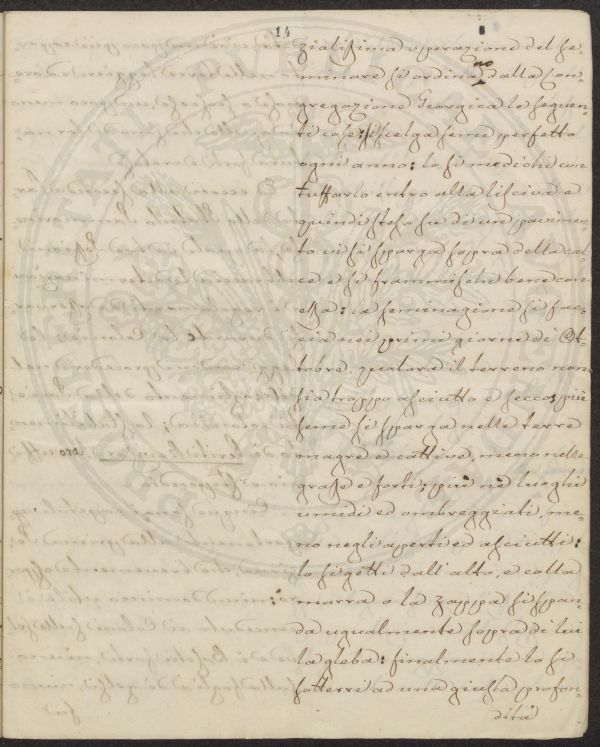 14
zialissima operazione del se-
minare si ordinano dalla Con-
gregazione Georgica le seguen-
ti cose: si scelga seme perfetto
ogni anno: lo si medichi con
tuffarlo entro alla lisciva e
quindi steso su di un pavimen-
to vi si sparga sopra della cal-
ce e si frammischi bene con
essa: la seminagione si fac-
cia nei primi giorni di Ot-
tobre, qualora il terreno non
sia troppo asciutto e secco; più
seme si sparga nelle terre
magre e cattive, meno nelle
grasse e forti; più ne luoghi
umidi ed ombreggiati, me-
no negli aperti ed asciutti:
lo si getti dall'alto, e colla
marra o la zappa si span-
da ugualmente sopra di lui
la gleba: finalmente lo si
sotterri ad una giusta profon-
dità